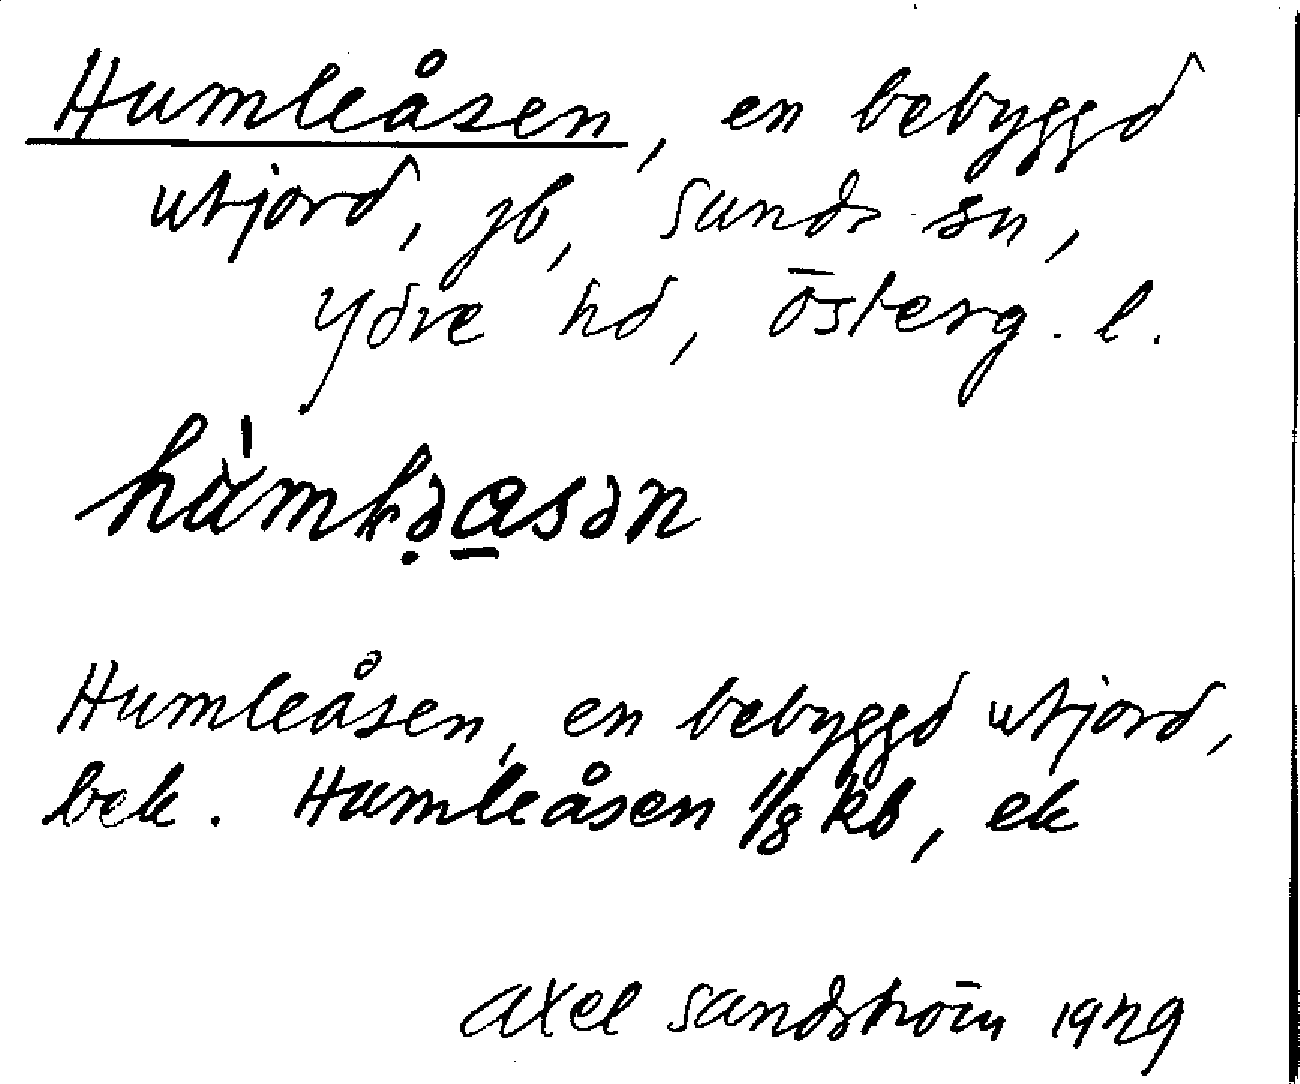 Humleåsen, en bebyggd
utjord, jb, Sunds sn,
Ydre hd, Österg. l.
Humleåsen, en bebyggd utjord,
bek. Humleåsen 1/8 kb, ek
Axel Sandström 1929